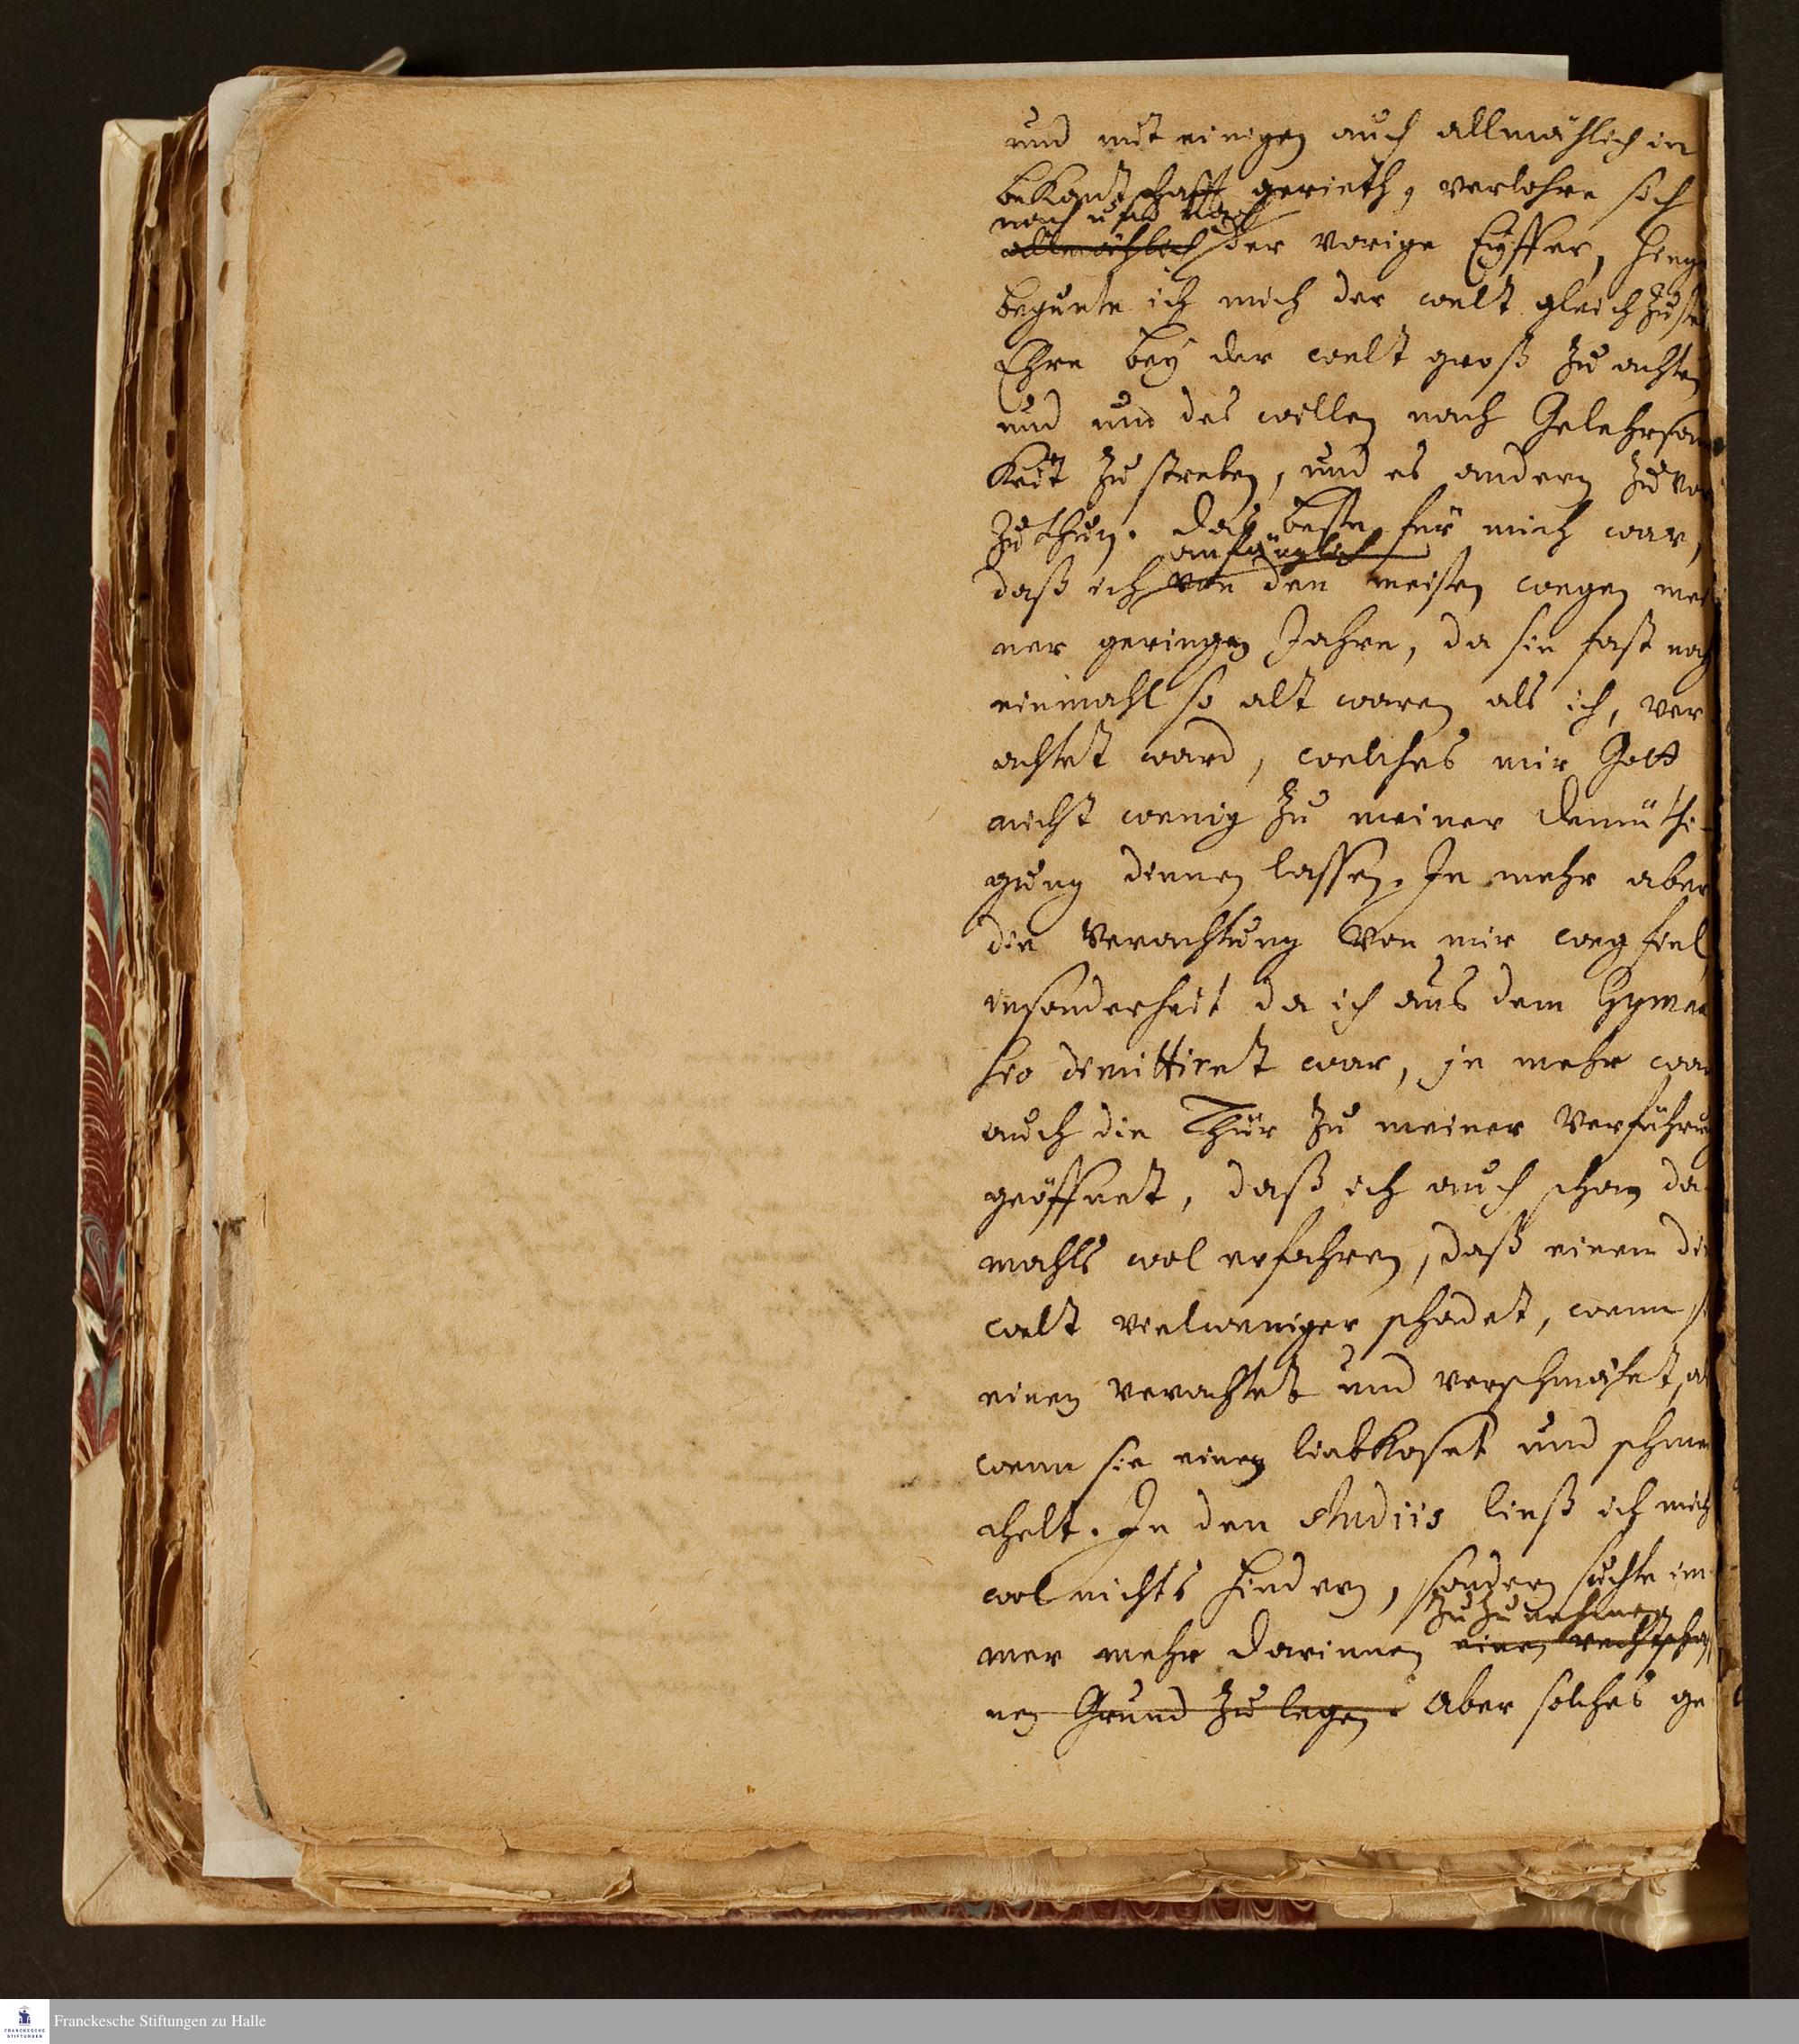 und mit einigen auch allmählich in
bekantschafft gerieth, verlohre sich
nach und nach
allmählich der vorige Eyffer, hing
begunte ich mich der welt gleich zu
Ehre bey der welt groß zu achten
und um des willen nach Gelehrsam
keit zu streben, und es andern zuvor
zuthun. Das beste für mich war,
anfänglich
daß ich von den meisten wegen mei
ner geringen Jahre, da sie fast noch
einmahl so alt waren als ich, ver
achtet ward, welches mir Gott
nicht wenig zu meiner Demüthi-
gung dienen lassen. Je mehr aber
die Verachtung von mir wegfiel
insonderheit da ich aus dem Gymna
sio dimittiret war, je mehr war
auch die Thür zu meiner Verführung
geöffnet, daß ich auch schon da
mahls wol erfahren, daß einem die
welt vielweniger schadet, wenn s
einen verachtet und verschmähet, al
wenn sie einen liebkoset und schmei
chelt. In den Studiis ließ ich mich
wol nichts hindern, sondern suchte im
zuzunehmen
mer mehr darinnen einen rechtschaf
nen Grund zu legen. Aber solches ge
Franckesche Stiftungen zu Halle
FRANCKESCHE
STIFTUNGEN